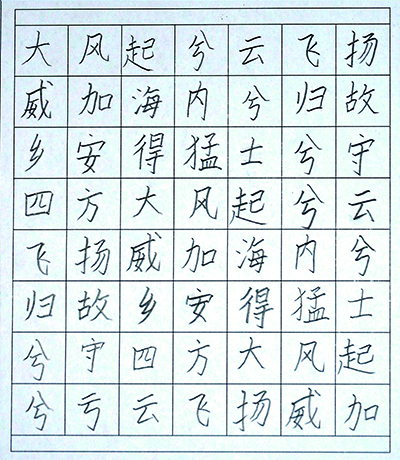 大风起兮云飞扬
威加海内兮归故
乡安得猛士兮守
四方大风起兮云
飞扬威加海内兮
归故乡安得猛士
兮守四方大风起
兮亏云飞扬威加